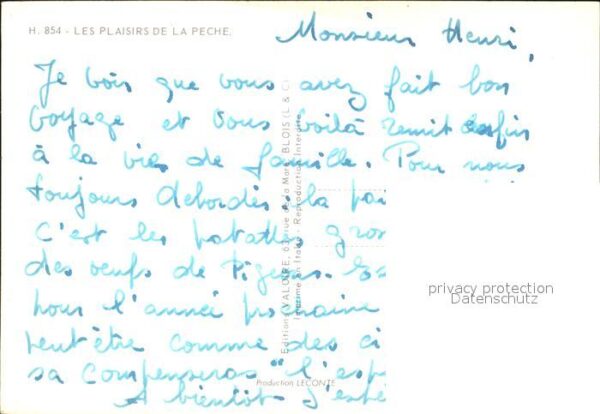 H. 854 - LES PLAISIRS DE LA PECHE.
Monsieur Henri,
Je vois que vous avez fait bon
voyage et vous voilà remit enfin
à la vie de famille. Pour nous
toujours débordés. la
C'est les patattes gros
des oeufs de Pigeons.
pour l'année prochaine
peut être comme des ci
sa compenseras "l'esp
A bientôt J'espè
Editions VALOIRE, 63 rue de la Mare, BLOIS (L & C)
Imprimé en Italie - Reproduction interdite
Production LECONTE
privacy protection
Datenschutz